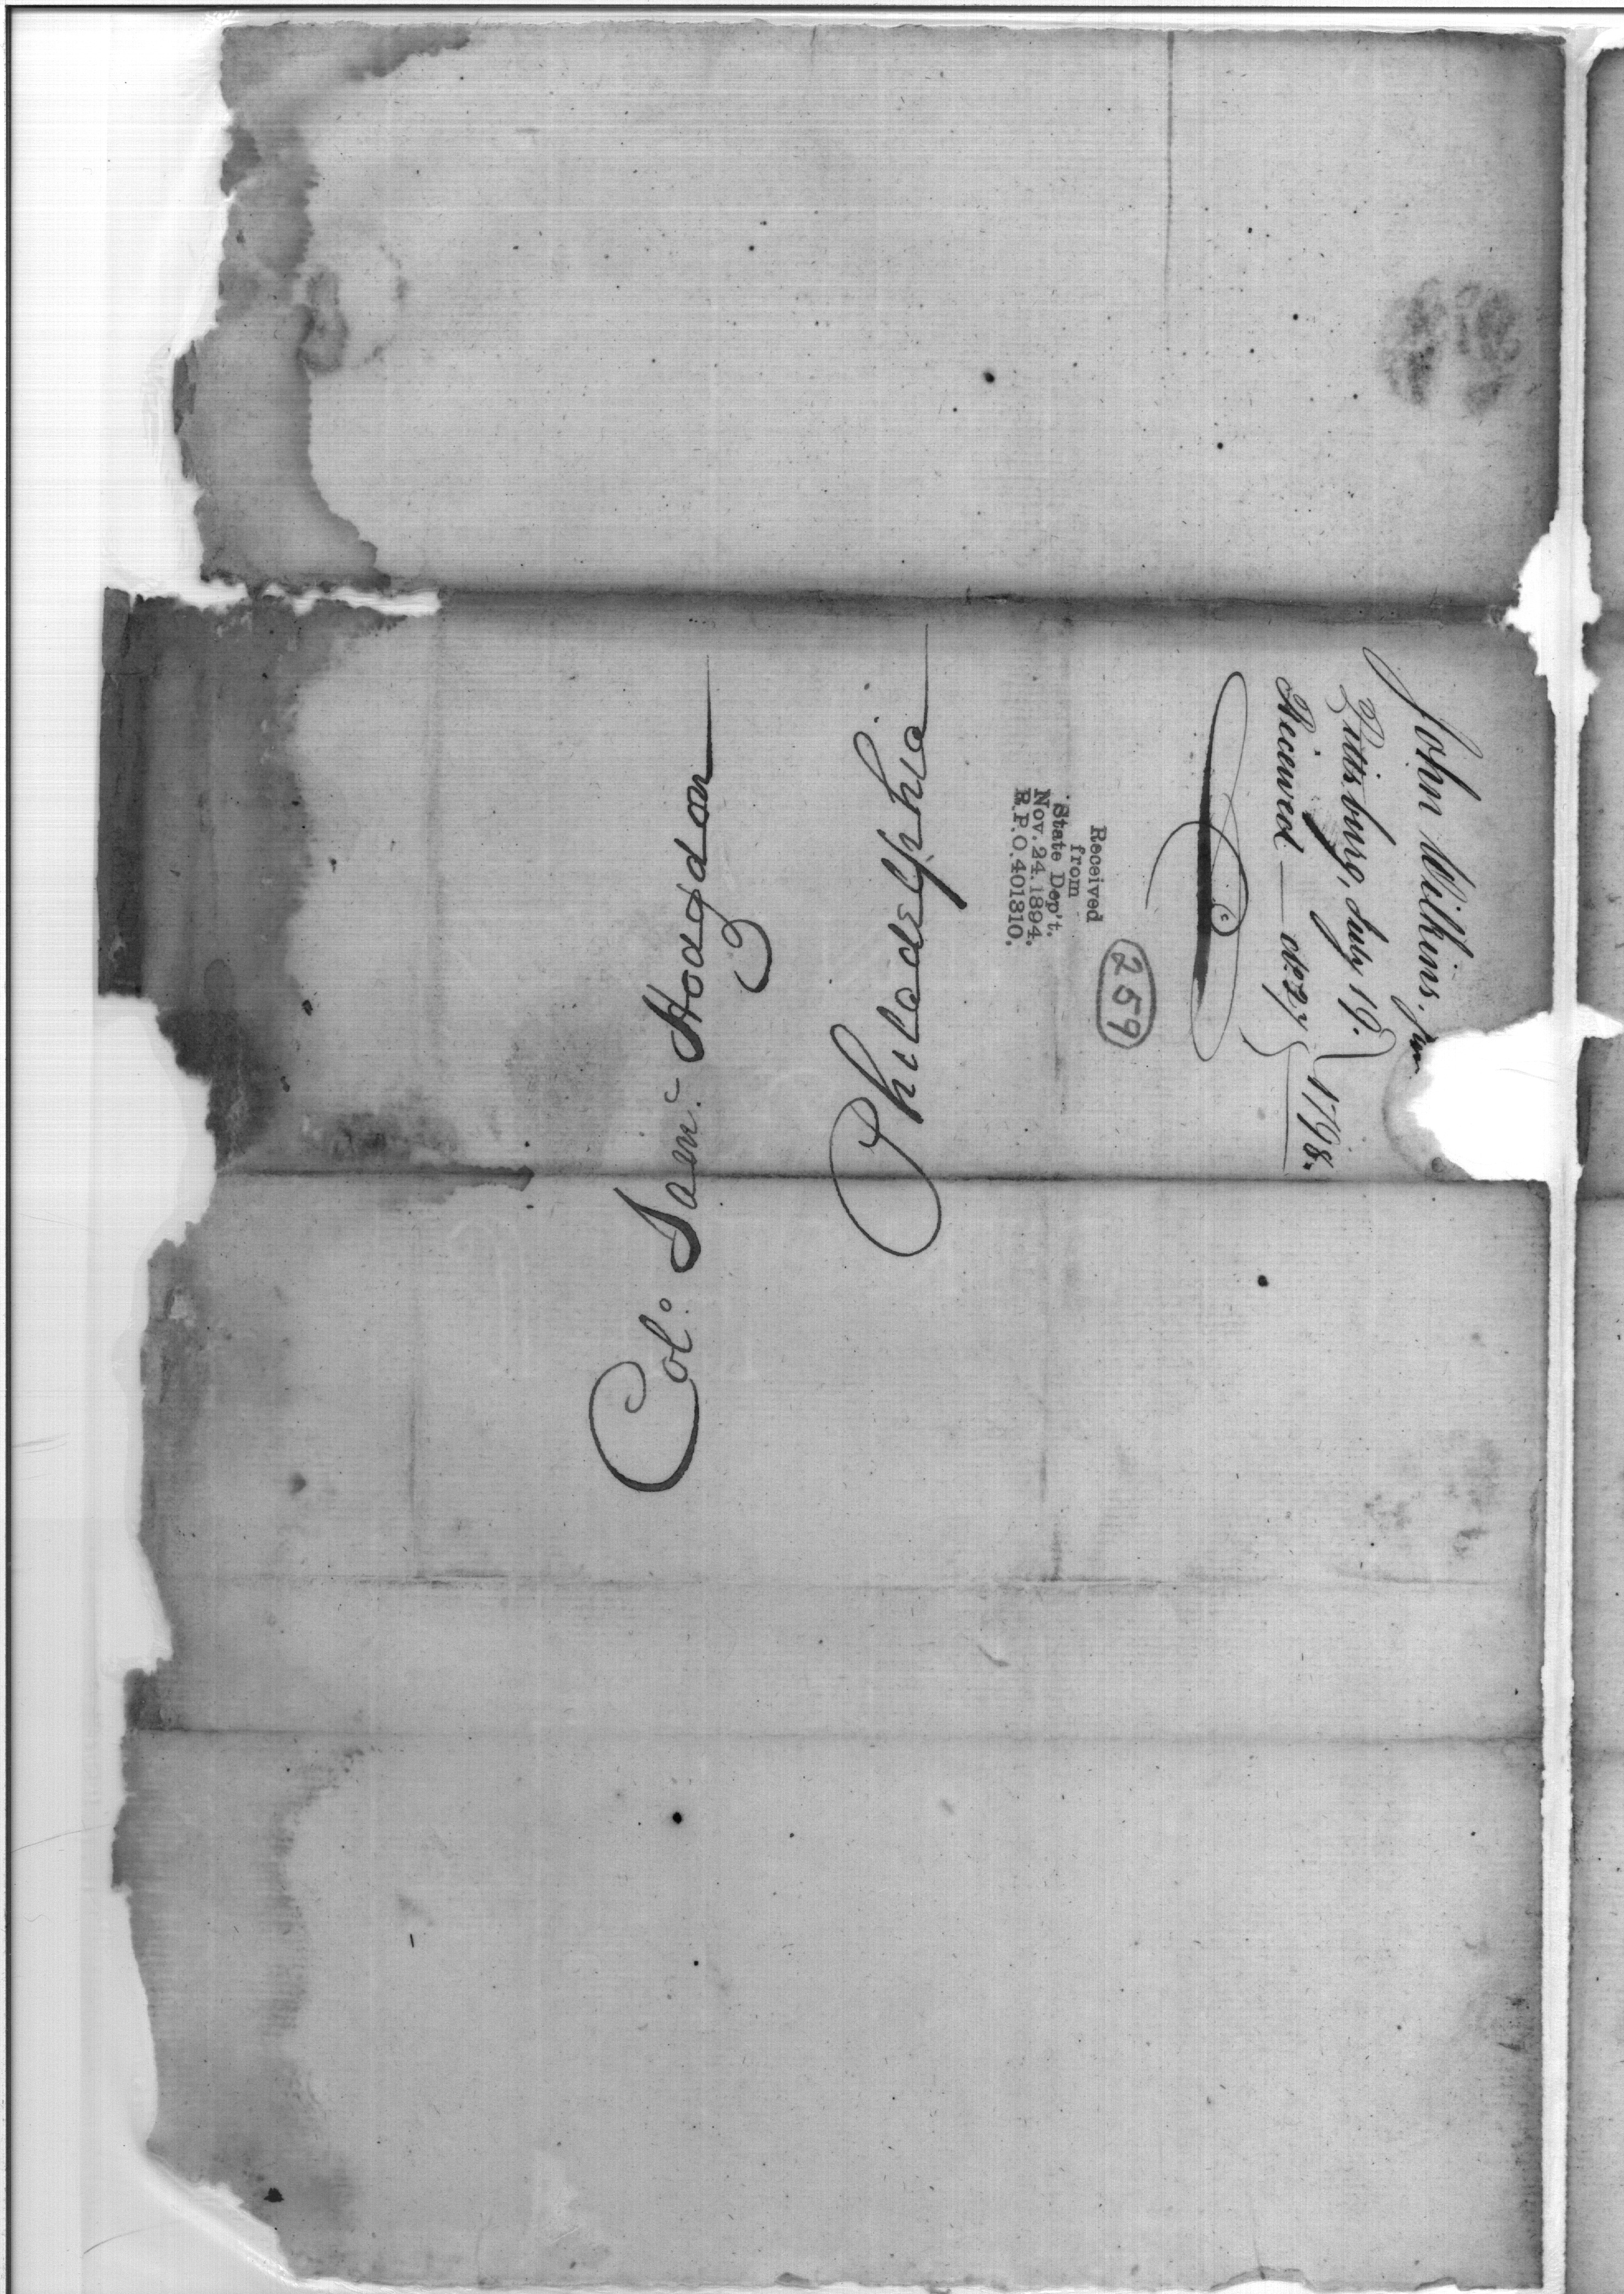 Col.o Sam.l Hodgdon
Philadelphia
John Wilkins, Jun
Pittsburg, July 19.
Received — do 27
1798.
259
Received
from
State Dep't.
Nov. 24. 1894.
R.P.O. 401310.